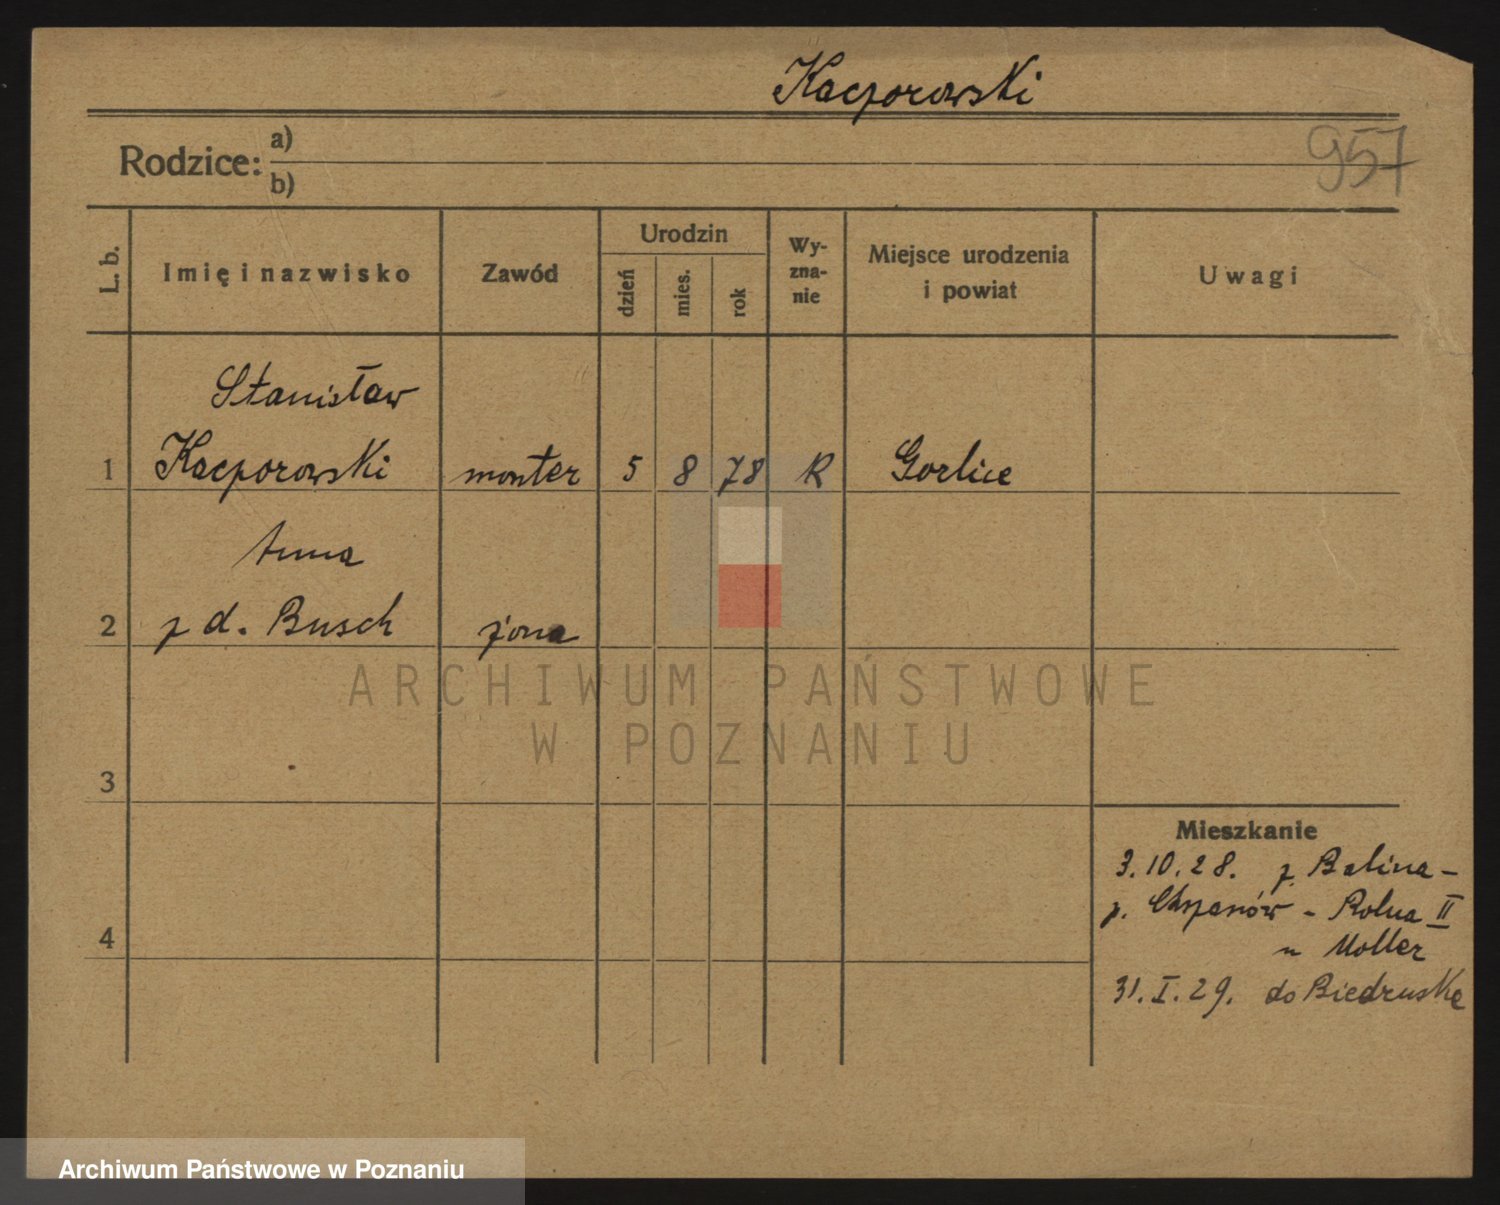 Kacporowski
957
Rodzice: a)
b)
L. b.
Imię i nazwisko
Zawód
Urodzin
dzień
mies.
rok
Wy-
zna-
nie
Miejsce urodzenia
i powiat
Uwagi
Stanisław
1 Kacporowski monter 5 8 78 R Gorlice
Anna
2 z d. Busch żona
ARCHIWUM PAŃSTWOWE
W POZNANIU
3
Mieszkanie
3.10.28. z Balina -
p. Chrzanów - Rolna II
4
u Moller
31.I.29. do Biedruska
Archiwum Państwowe w Poznaniu